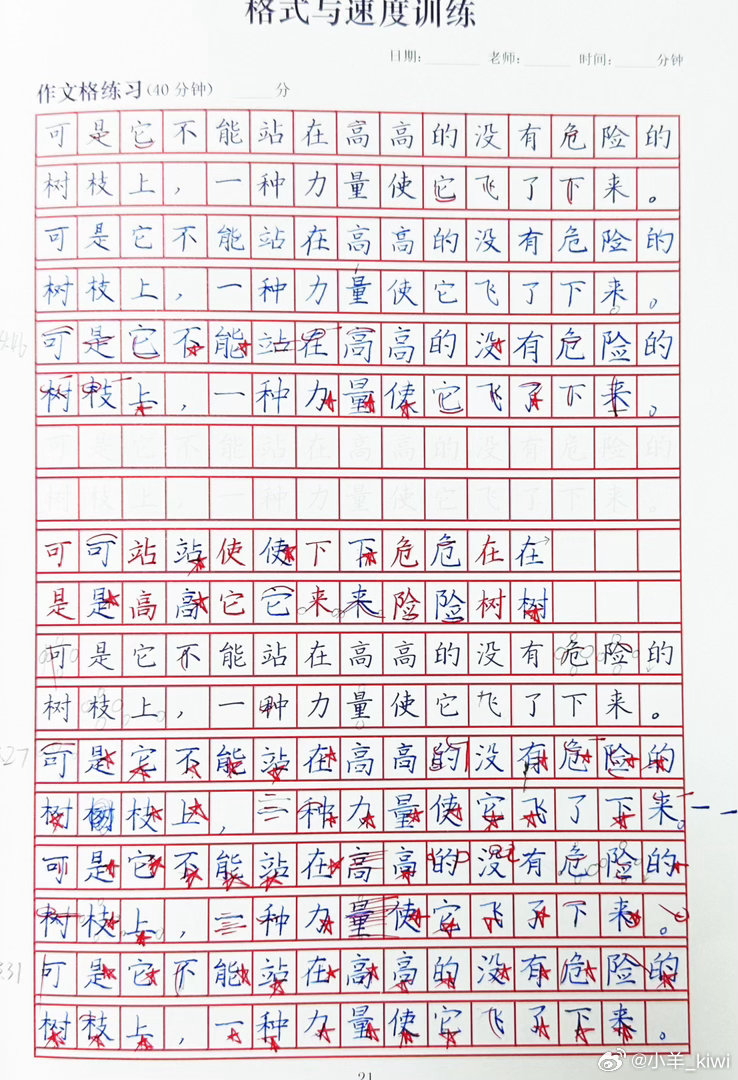 格式与速度训练
日期: 老师: 时间: 分钟
作文格练习(40分钟) 分
可是它不能站在高高的没有危险的
树枝上，一种力量使它飞了下来。
可是它不能站在高高的没有危险的
树枝上，一种力量使它飞了下来。
可是它不能站在高高的没有危险的
树枝上，一种力量使它飞了下来。
可是它不能站在高高的没有危险的
树枝上，一种力量使它飞了下来。
可可站站使使下下危危在在
是是高高它它来来险险树树
可是它不能站在高高的没有危险的
树枝上，一种力量使它飞了下来。
可是它不能站在高高的没有危险的
树树枝上，一种力量使它飞了下来。
可是它不能站在高高的没有危险的
树枝上，一种力量使它飞了下来。
可是它不能站在高高的没有危险的
树枝上，一种力量使它飞了下来。
21
@小羊_kiwi